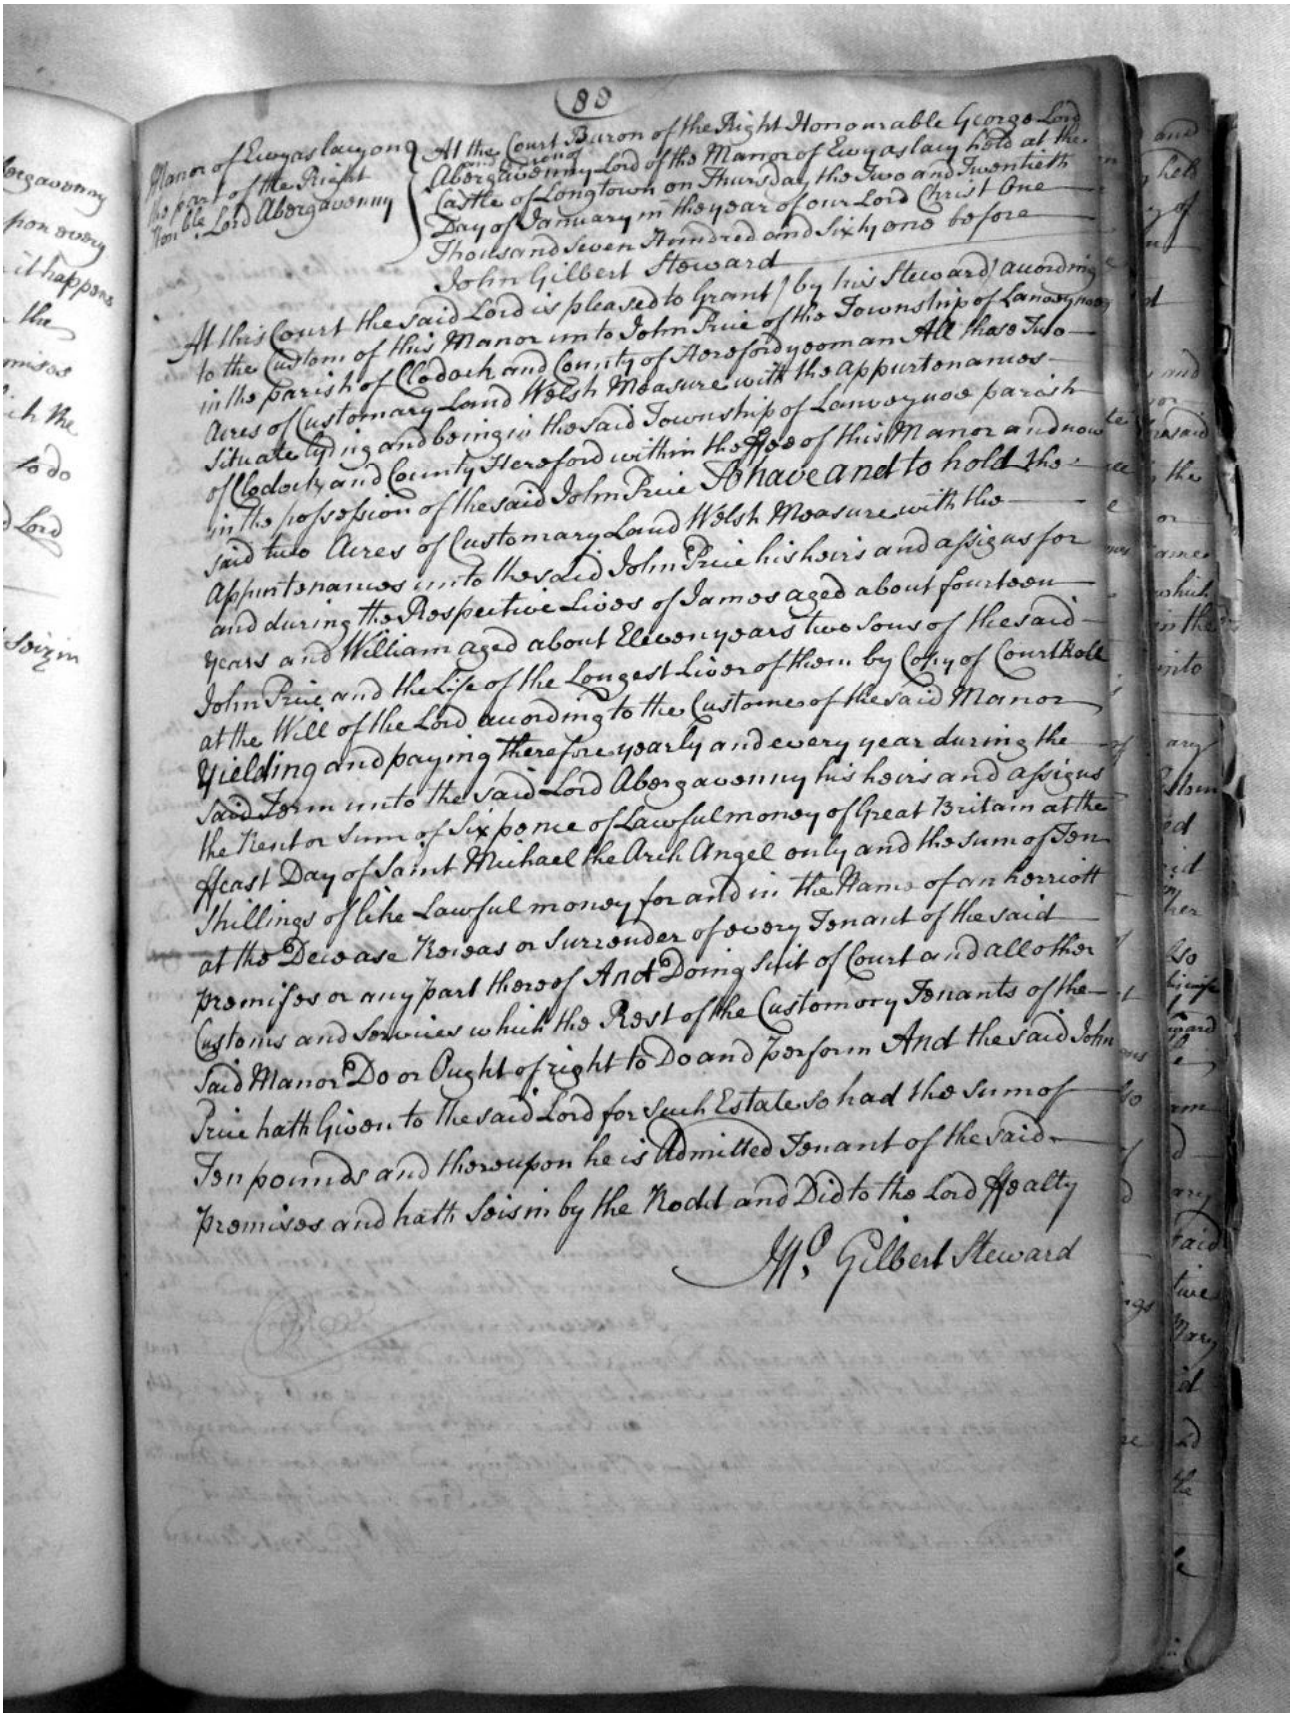 88
Manor of Ewyaslacy on
the part of the Right
Honble. Lord Abergavenny
At the Court Baron of the Right Honourable George Lord
Abergavenny Lord of the Manor of Ewyaslacy held at the
Castle of Longtown on Thursday the Two and Twentieth
Day of January in the year of our Lord Christ One
Thousand Seven Hundred and Sixty one before
John Gilbert Steward
At this Court the said Lord is pleased to Grant (by his Steward) according
to the Custom of this Manor unto John Price of the Township of Lanveynoe
in the parish of Clodock and County of Hereford yeoman All those Two
Acres of Customary Land Welsh Measure with the Appurtenances
situate lyding and being in the said Township of Lanveynoe parish
of Clodock and County Hereford within the ffee of this Manor and now
in the possession of the said John Price To have and to hold the
said two Acres of Customary Land Welsh Measure with the
Appurtenances unto the said John Price his heirs and assigns for
and during the Respective Lives of James aged about fourteen
years and William aged about Eleven years two Sons of the said
John Price and the Life of the Longest Liver of them by Copy of Court Roll
at the Will of the Lord according to the Custome of the said Manor
Yielding and paying therefore yearly and every year during the
said Term unto the said Lord Abergavenny his heirs and assigns
the Rent or Sum of Six pence of Lawful money of Great Britain at the
ffeast Day of Saint Michael the Arch Angel only and the sum of Ten
Shillings of like Lawful money for and in the Name of an herriott
at the Decease or Surrender of every Tenant of the said
premises or any part thereof And Doing Suit of Court and all other
Customs and Services which the Rest of the Customory Tenants of the
said Manor Do or Ought of right to Do and perform And the said John
Price hath Given to the said Lord for such Estate so had the sum of
Ten pounds and thereupon he is Admitted Tenant of the said
premises and hath Seisin by the Rodd and Did to the Lord ffealty
Jno. Gilbert Steward